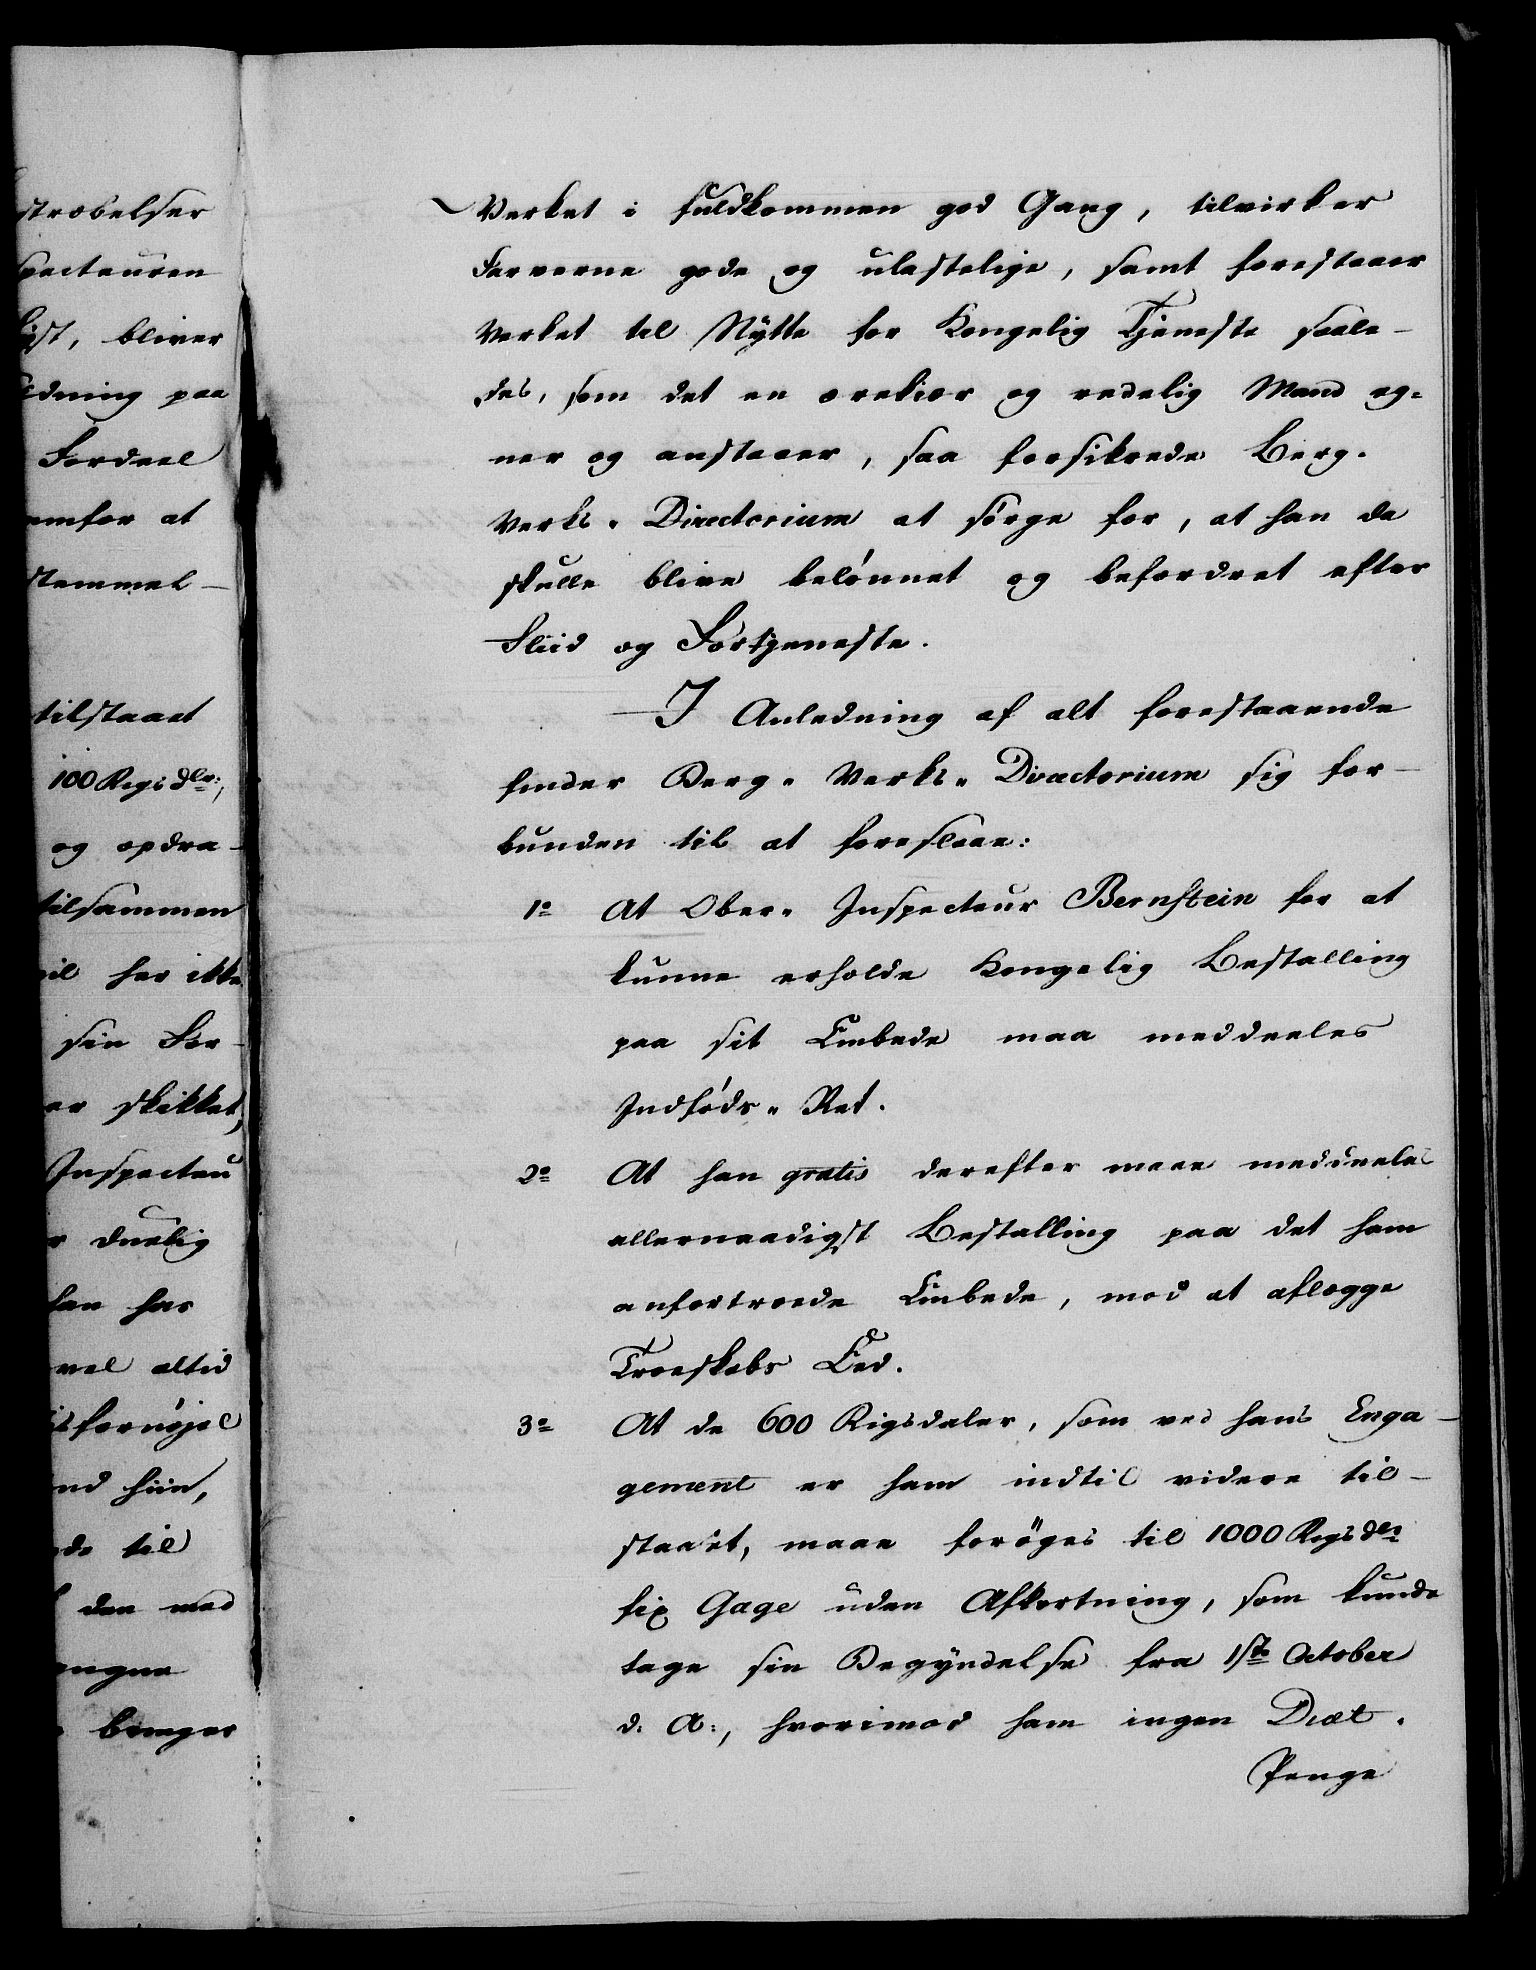 stræbelser
specteuren
gst, bliver
edning paa
Fordeel
emfor at
stemmel-
tilstaaet
100 Rigsdlr:,
og opdra-
tilsammen
il her ikke
sin For-
er skikket,
Inspecteu
r duelig
han har
vel altid
isfornøjel
nd hiin,
de til
den med
engne
bringer
Verket i fuldkommen god Gang, tilvirker
Farverne gode og ulastelige, samt forestaaer
Verket til Nytte for Kongelig Tjeneste saale-
des, som det en ærekiær og redelig Mand eg-
ner og anstaaer, saa forsikrede Berg-
Verks-Directorium at sørge for, at han da
skulle blive belønnet og befordret efter
Fliid og Fortjeneste.
I Anledning af alt forestaaende
finder Berg-Verks-Directorium sig for-
bunden til at foreslaae:
1o At Ober-Inspecteur Bernstein for at
kunne erholde Kongelig Bestalling
paa sit Embede maa meddeeles
Indføds-Ret.
2o At han gratis derefter maae meddeeles
allernaadigst Bestalling paa det ham
anfortroede Embede, mod at aflægge
Troeskabs Eed.
3o At de 600 Rigsdaler, som ved hans Enga-
gement er ham indtil videre til-
staaet, maae forøges til 1000 Rigsdlr
fix Gage uden Afkortning, som kunde
tage sin Begyndelse fra 1ste October
d: A:, hvorimod ham ingen Diæt-
Penge